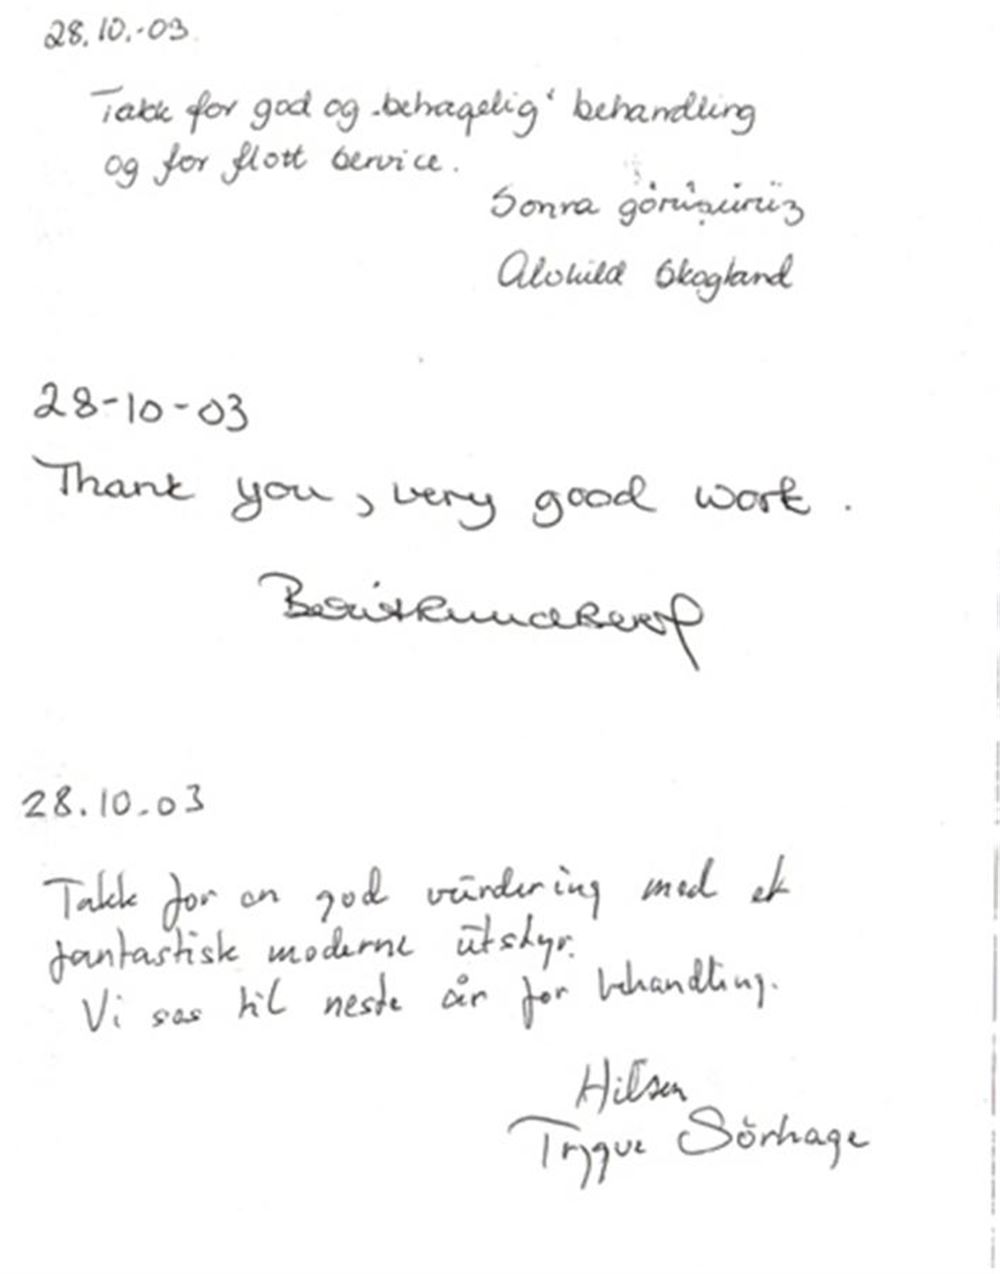 28.10.-03.
Takk for god og "behagelig" behandling
og for flott service.
Sonra görüşürüz
Alvhild Skogland
28-10-03
Thank you, very good work.
Berit
28.10.03
Takk for en god vŭrdering med et
fantastisk moderne ŭtstyr.
Vi sees til neste år for behandling.
Hilsen
Trygve Sörhage